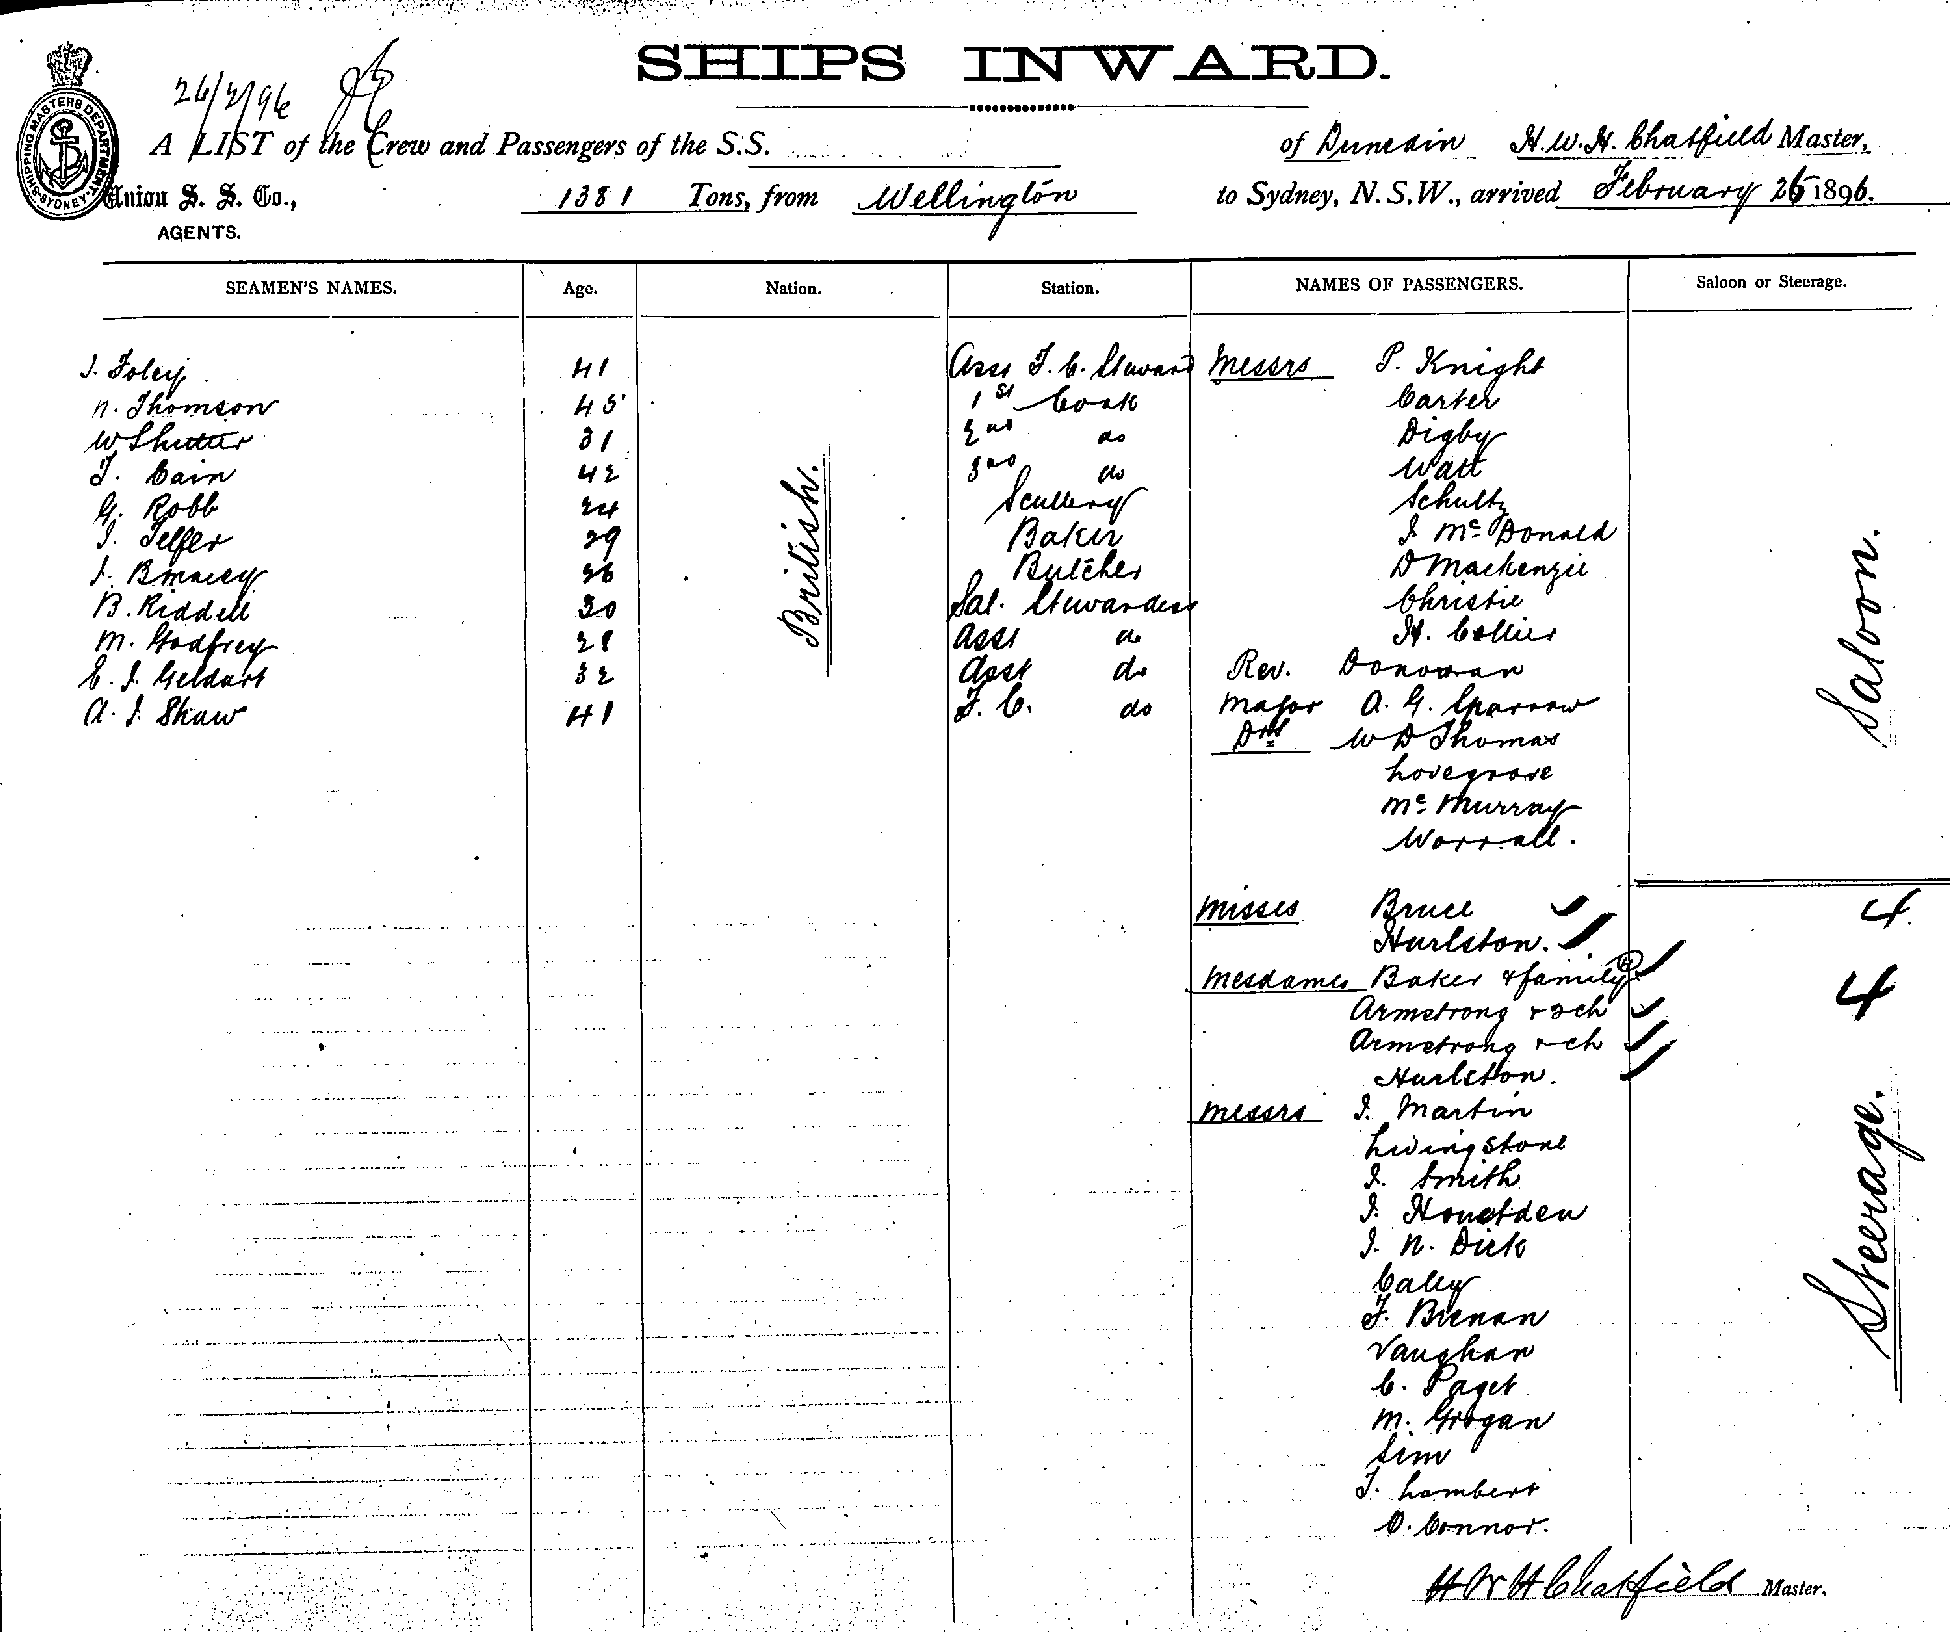 SHIPS INWARD.
26/2/96
SHIPPING MASTERS DEPARTMENT SYDNEY
A LIST of the Crew and Passengers of the S.S. of Dunedin H. W. H. Chatfield Master,
Union S. S. Co., 1381 Tons, from Wellington to Sydney, N.S.W., arrived February 26 1896.
AGENTS.
SEAMEN'S NAMES. Age. Nation. Station. NAMES OF PASSENGERS. Saloon or Steerage.
J. Foley 41 Asst F. C. Steward Messrs P. Knight
N. Thomson 45 1st Cook Carter
W Shutter 31 2nd do Digby
T. Cain 42 3rd do Watt
G. Robb 24 Scullery Schultz
J. Telfer 29 Baker J McDonald
J. 26 Butcher D Mackenzie
B. Riddell 30 Sal. Stewardess Christie
M. Godfrey 28 Asst do H. Collier
E. J. Geldart 32 Asst do Rev. Donovan
A. J. Shaw 41 F. C. do Major A. G. Sparrow
British.
Drs W D Thomas
Lovegrove
McMurray
Worrall.
Saloon.
Misses Bruce 4
Hurlston.
Mesdames Baker & family 4
Armstrong & 2 ch
Armstrong & ch
Hurlston.
Messrs J. Martin
Livingstone
J. Smith
J.
J. N. Dick
Caley
F. Brenan
Vaughan
C. Paget
M. Grogan
Sim
T. Lambert
O. Connor.
Steerage.
H W H Chatfield Master.